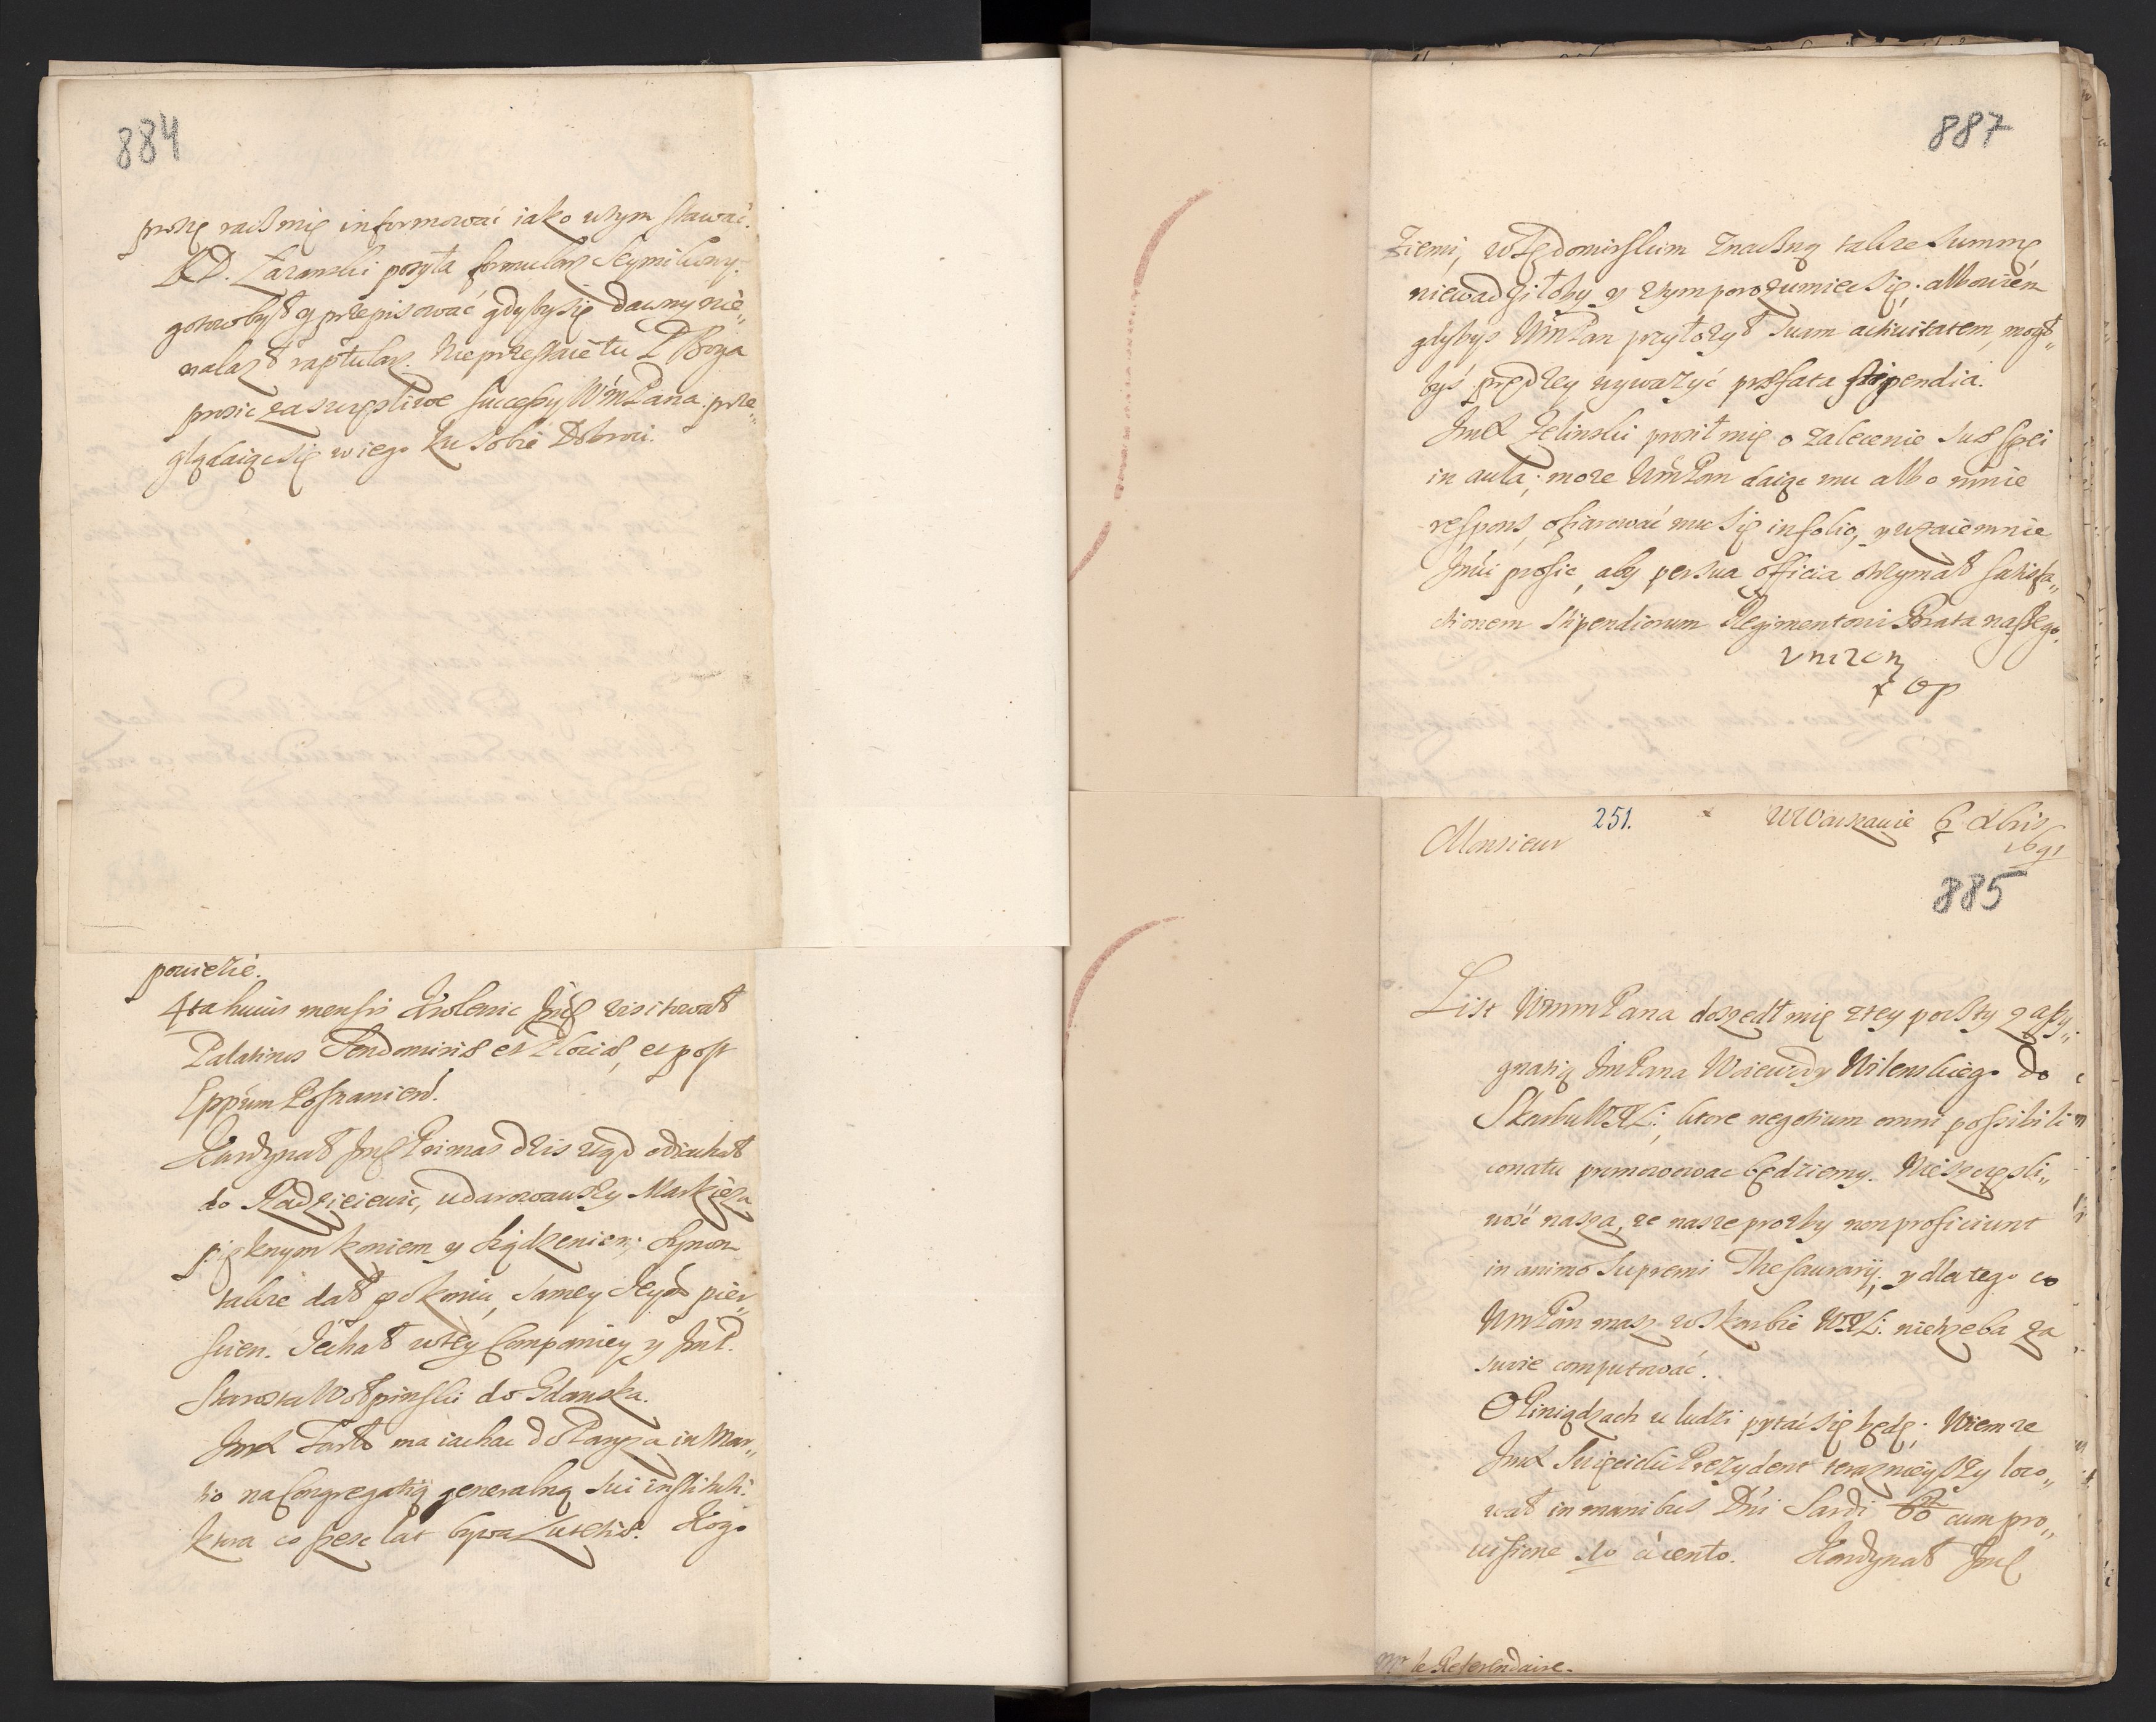 884
proszę racz mię informować iako wtym stawać.
XD. Zaranski posyła formularz Seymikowy.
gotow był y przepisować gdyby się dawny nie„
nalazł raptularz. Nieprzestaię tu P. Boga
prosic za szczęsliwe successy WmPana. prze„
glądaiąc się w iego ku sobie Dobroci.
powiezie.
4ta huius mensis Krolewic Jmć visitował
Palatinos Sendomiriæ et Plociæ, et post
Eppum Posnanien.
Kardynał Jmć Primas dzis ztąd odiachał
do Radzieiewic, udarowawszy Markieza
pięknym koniem y siądzeniem. Synom
także dał po koniu, samey Jeymć pier„
scien. Jechał wtey Companiey y JmP.
Starosta Wołpinski do Gdanska.
JmX Tarło ma iachac do Paryza in Mar„
tio na Congregatią generalną sui instituti.
ktora co szesc lat bywa Lutetiæ. Kogo
887
Ziemi, w Sędomirskim znaczną także summę
niewadziłoby y wtym porozumiec się. albowiem
gdybys WmPan przyłozył suam activitatem, mogł„
bys prędzey wywazyć præfata stipendia.
JmX Zelinski prosił mię o zalecenie suæ spei
in aula; moze WmPan daiąc mu albo mnie
respons, ofiarować mu się in folio, y wzaiemnie
Jmći prosic, aby per sua officia otrzymał satisfa„
ctionem stipendiorum Regimentowi Brata naszego.
Vnizon
X Op
251.
Monsieur
w Warszawie 6 Xbris
1691
885
List WmmPana doszedł mię z tey poczty z assy„
gnatią JmPana Woiewody Wilenskiego do
Skarbu WXL:, ktore negotium omni possibili
conatu promowowac będziemy. Nieszczęsli„
wość nasza, ze nasze prozby non proficiunt
in animo supremi Thesaurarij; y dla tego co
WmPan masz w Skarbie WXL: nietrzeba za
swoie computować.
O Piniądzach u ludzi pytać się będę; Wiem ze
JmX Swięcicki Prezydent teraznieyszy loco„
wał in manibus Dni Sardi 60 cum pro„
visione sto à cento. Kardynał Jmć
Mr le Referendaire.